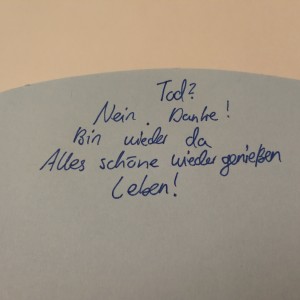 Tod?
Nein. Danke!
Bin wieder da
Alles schöne wieder genießen
Leben!